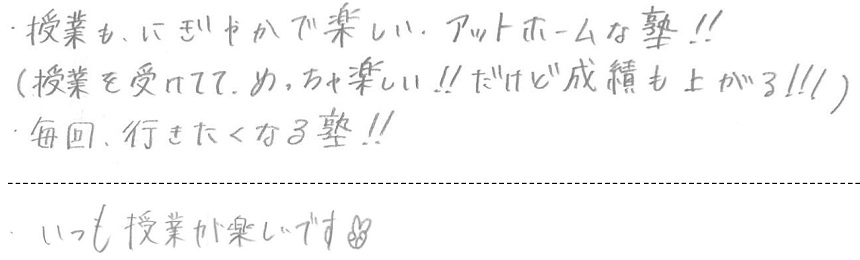 ・授業も、にぎやかで楽しい、アットホームな塾!!
(授業を受けてて、めっちゃ楽しい!!だけど成績も上がる!!!)
・毎回、行きたくなる塾!!
・いつも授業が楽しいです